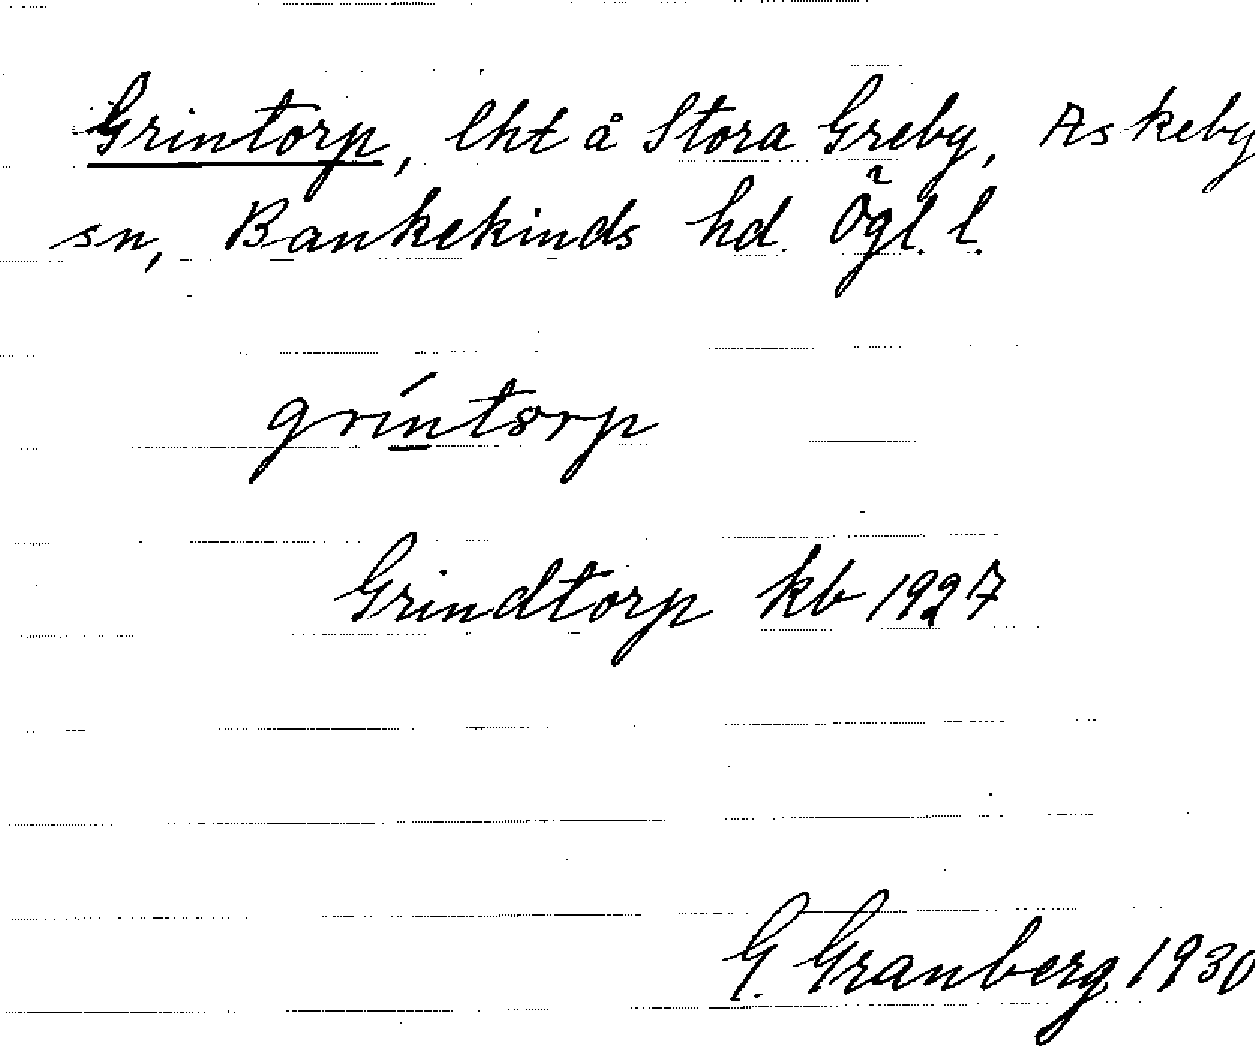 Grintorp, lht å Stora Greby, Askeby
sn, Bankekinds hd. Ögl. l.
gríntorp
Grindtorp kb 1927
G. Granberg 1930